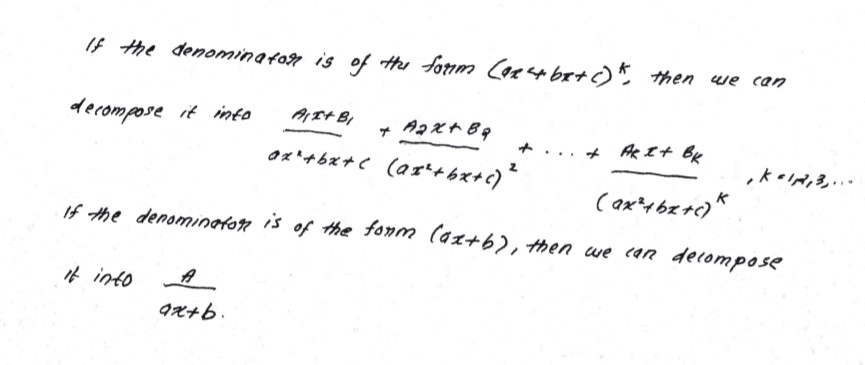 If the denominator is of the form (ax²+bx+c)ᵏ, then we can
decompose it into (A₁x+B₁)/(ax²+bx+c) + (A₂x+B₂)/(ax²+bx+c)² + ... + (Aₖx+Bₖ)/(ax²+bx+c)ᵏ , k=1,2,3,...
If the denominator is of the form (ax+b), then we can decompose
it into A/(ax+b).